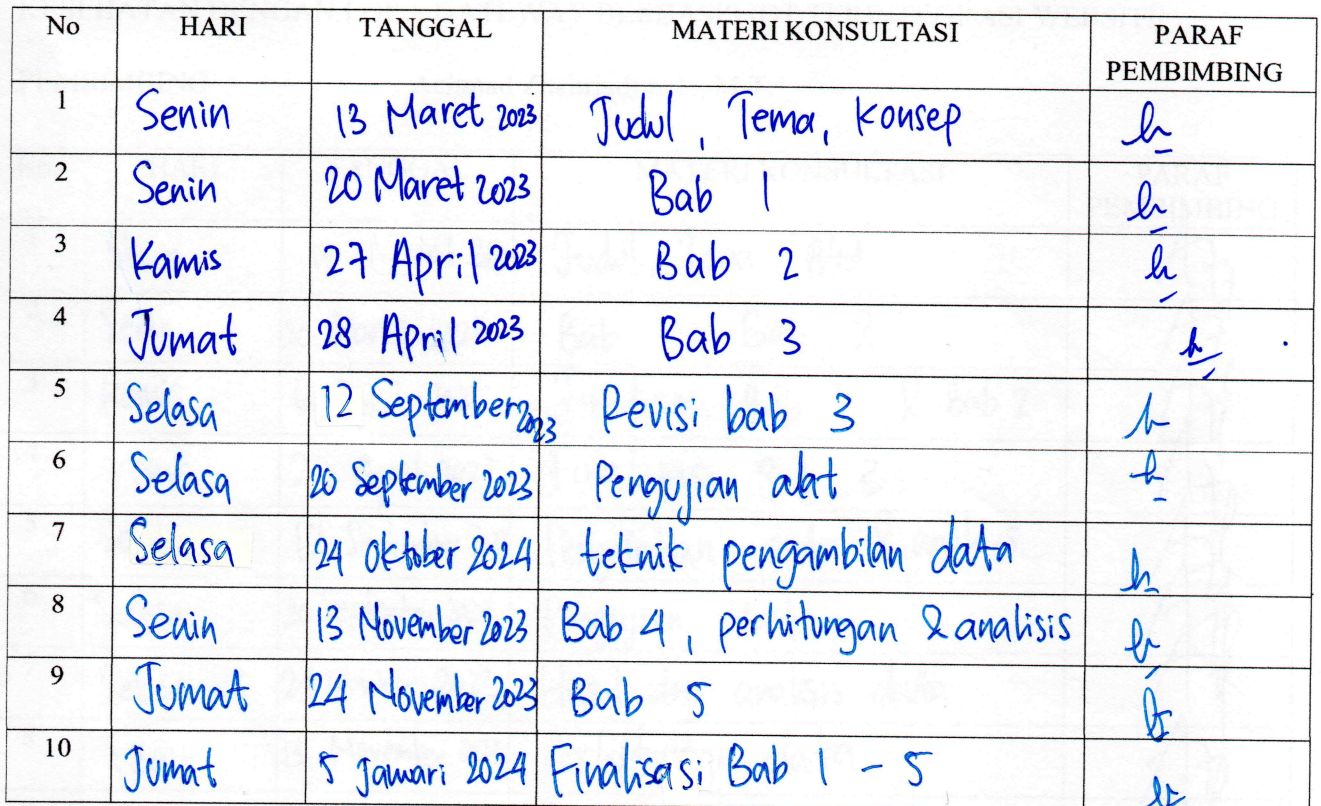 No HARI TANGGAL MATERI KONSULTASI PARAF PEMBIMBING
1 Senin 13 Maret 2023 Judul, Tema, Konsep
2 Senin 20 Maret 2023 Bab 1
3 Kamis 27 April 2023 Bab 2
4 Jumat 28 April 2023 Bab 3
5 Selasa 12 September 2023 Revisi bab 3
6 Selasa 20 September 2023 Pengujian alat
7 Selasa 24 Oktober 2024 teknik pengambilan data
8 Senin 13 November 2023 Bab 4, perhitungan & analisis
9 Jumat 24 November 2023 Bab 5
10 Jumat 5 Januari 2024 Finalisasi Bab 1 - 5